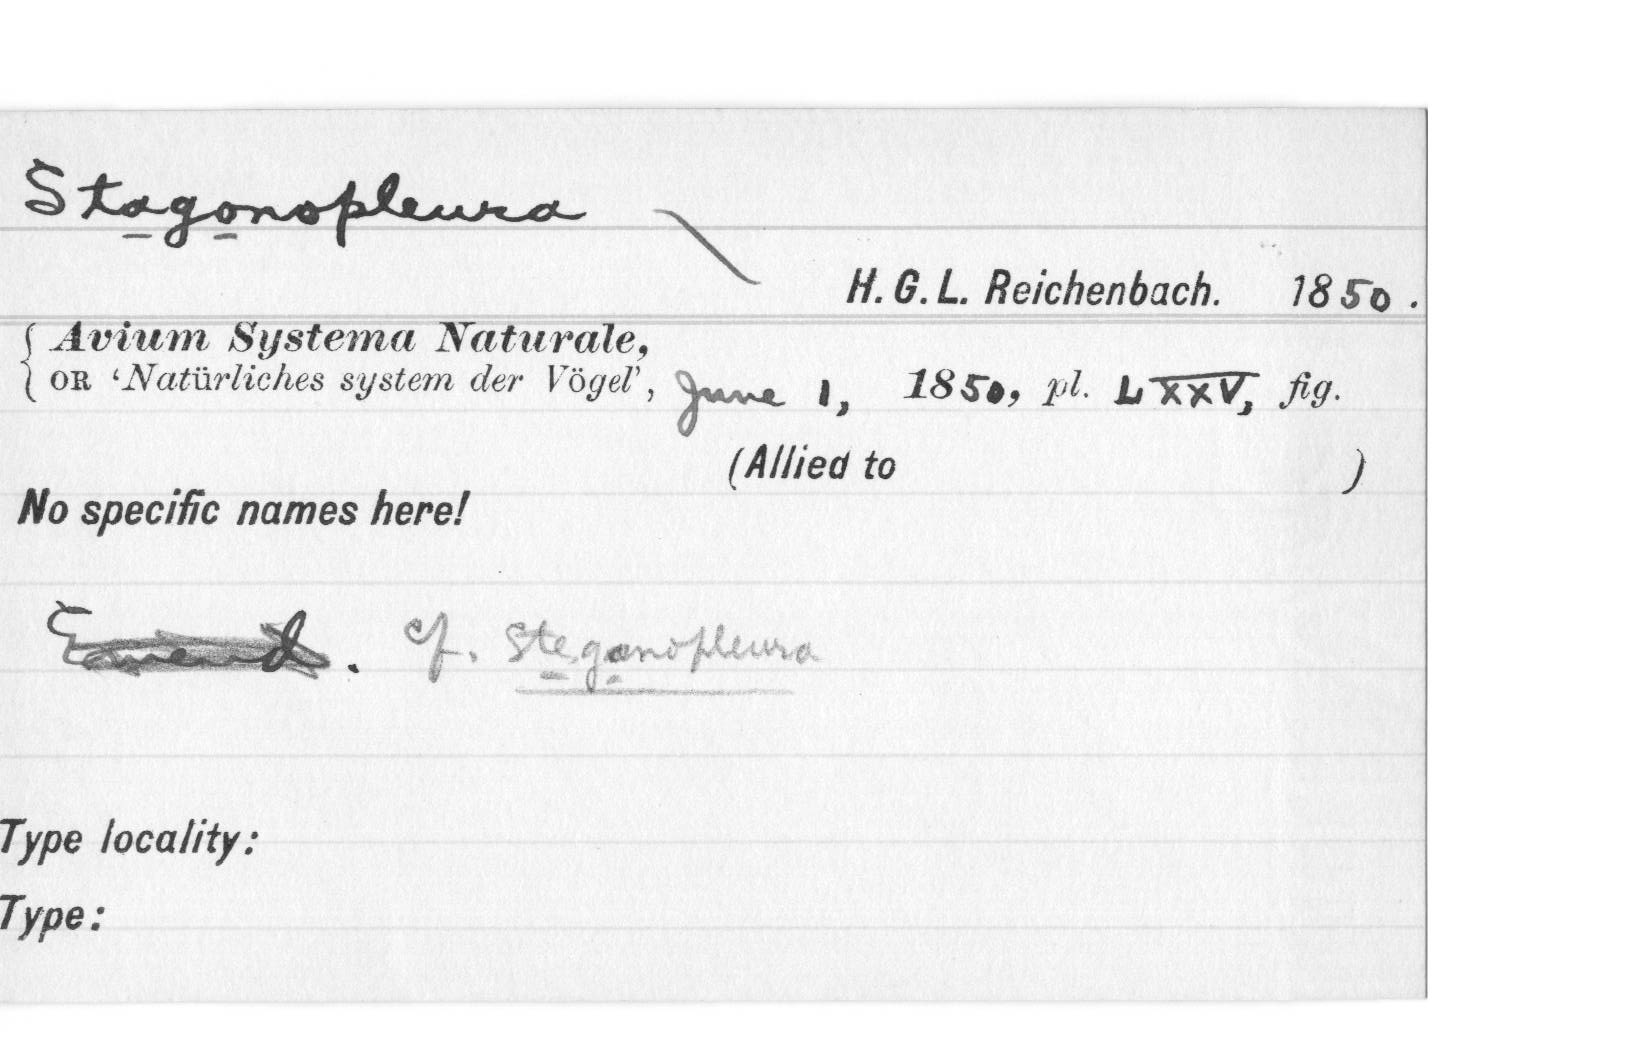 Stagonopleura
H. G. L. Reichenbach. 1850.
{ Avium Systema Naturale,
{ OR 'Natürliches system der Vögel', June 1, 1850, pl. LXXV, fig.
(Allied to )
No specific names here!
Emend. cf. Steganopleura
Type locality:
Type: